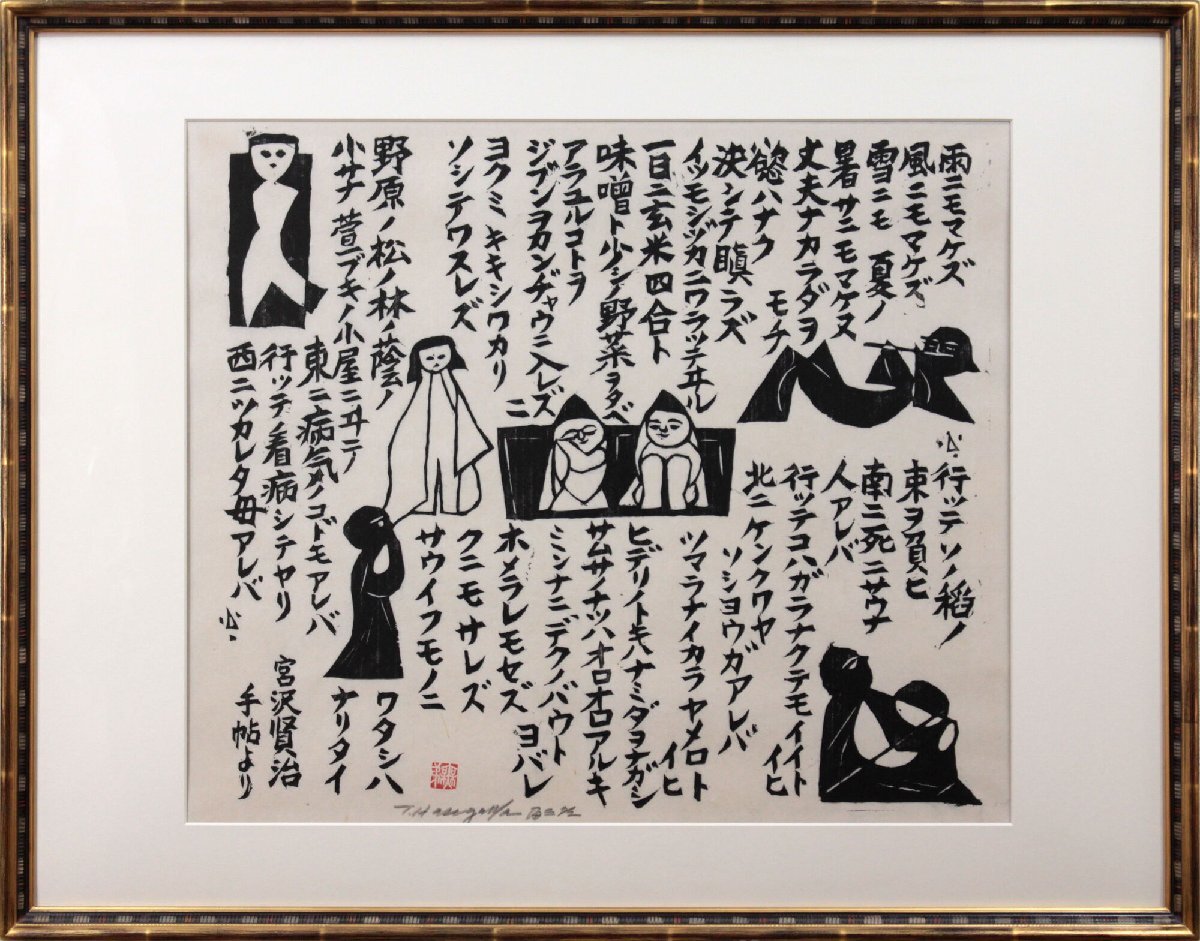 雨ニモマケズ
風ニモマケズ
雪ニモ 夏ノ
暑サニモマケヌ
丈夫ナカラダヲ
モチ
慾ハナク
決シテ瞋ラズ
イツモシヅカニワラッテヰル
一日ニ玄米四合ト
味噌ト少シノ野菜ヲタベ
アラユルコトヲ
ジブンヲカンヂャウニ入レズ
ニ
ヨクミキキシワカリ
ソシテワスレズ
野原ノ松ノ林ノ蔭ノ
小サナ萓ブキノ小屋ニヰテ
東ニ病気ノコドモアレバ
行ッテ看病シテヤリ
西ニツカレタ母アレバ
行ッテソノ稲ノ
束ヲ負ヒ
南ニ死ニサウナ
人アレバ
行ッテコハガラナクテモイイト
イヒ
北ニケンクワヤ
ソショウガアレバ
ツマラナイカラヤメロト
イヒ
ヒデリノトキハナミダヲナガシ
サムサノナツハオロオロアルキ
ミンナニデクノバウト
ヨバレ
ホメラレモセズ
クニモサレズ
サウイフモノニ
ワタシハ
ナリタイ
宮沢賢治
手帖より
T. Hasegawa